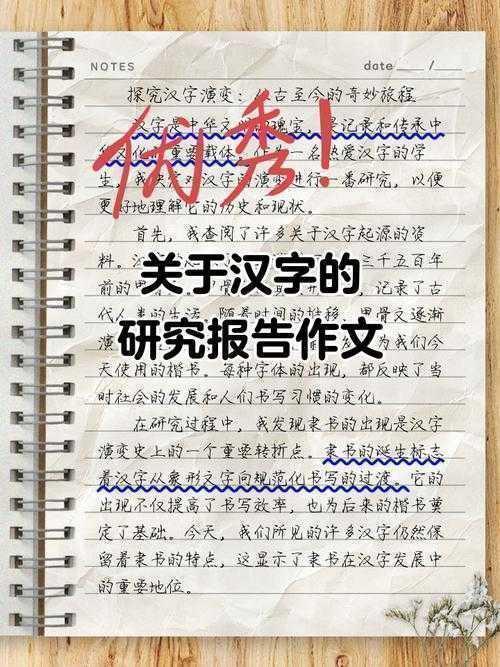 NOTES
date ___ / ___
探究汉字演变：从古至今的奇妙旅程
汉字是中华文 瑰宝 是记录和传承中
重要载体 名热爱汉字的学
生，我 对汉字的演 进行 番研究，以便
更好地理解它的历史和现状。
优秀！
首先，我查阅了许多关于汉字起源的资
料。 三千五百年
前的甲 记录了古
代人 生活 随着时间的 甲骨文逐渐
演 为我们今
天使用的楷书。每种字体的出现，都反映了当
时社会的发展和人们书写习惯的变化。
关于汉字的
研究报告作文
在研究过程中，我发现隶书的出现是汉字
演变史上的一个重要转折点。隶书的诞生标志
着汉字从象形文字向规范化书写的过渡。它的
出现不仅提高了书写效率，也为后来的楷书奠
定了基础。今天，我们所见的许多汉字仍然保
留着隶书的特点，这显示了隶书在汉字发展中
的重要地位。